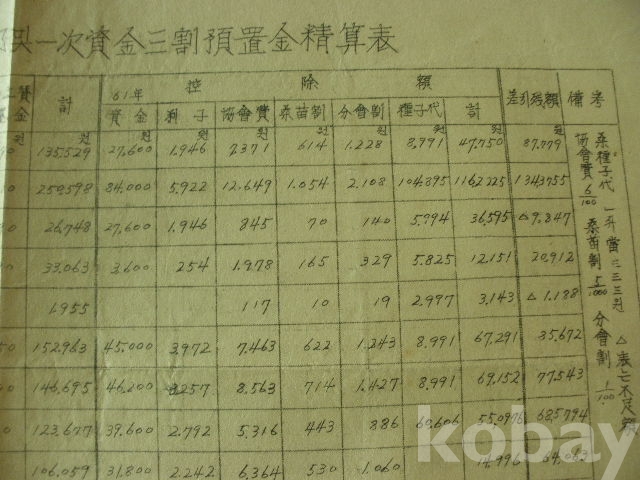 一次資金三割預置金精算表
資金 計 控除額 差引残額 備考
61年資金 利子 協會費 桑苗割 分會割 種子代 計
원 원 원 원 원 원 원 원 원
135.529 27,600 1.946 7,371 614 1.228 8.991 47.750 87.779
250.598 84,000 5.922 12.649 1.054 2.108
26.748 27,600 1.946 845 70 140 5.994 36.595 △9.847
33.063 3.600 254 1.978 165 329 5.825 12.151 20,912
1.955 117 10 19 2.997 3.143 △1.188
152.963 45.000 3.972 7.463 622 1.243 8.991 67,291 85.672
146.695 46,200 3257 8.563 714 1.427 8.991 69,152 77,543
123.677 39.600 2.792 5.316 443 886
106.059 31.800 2.242 6,364 530 1.060 14.996
桑種子代 一升當 三三三원
協會費 6/100 桑苗割 5/1000 分會割 1/100
△表亡不足額
kobay